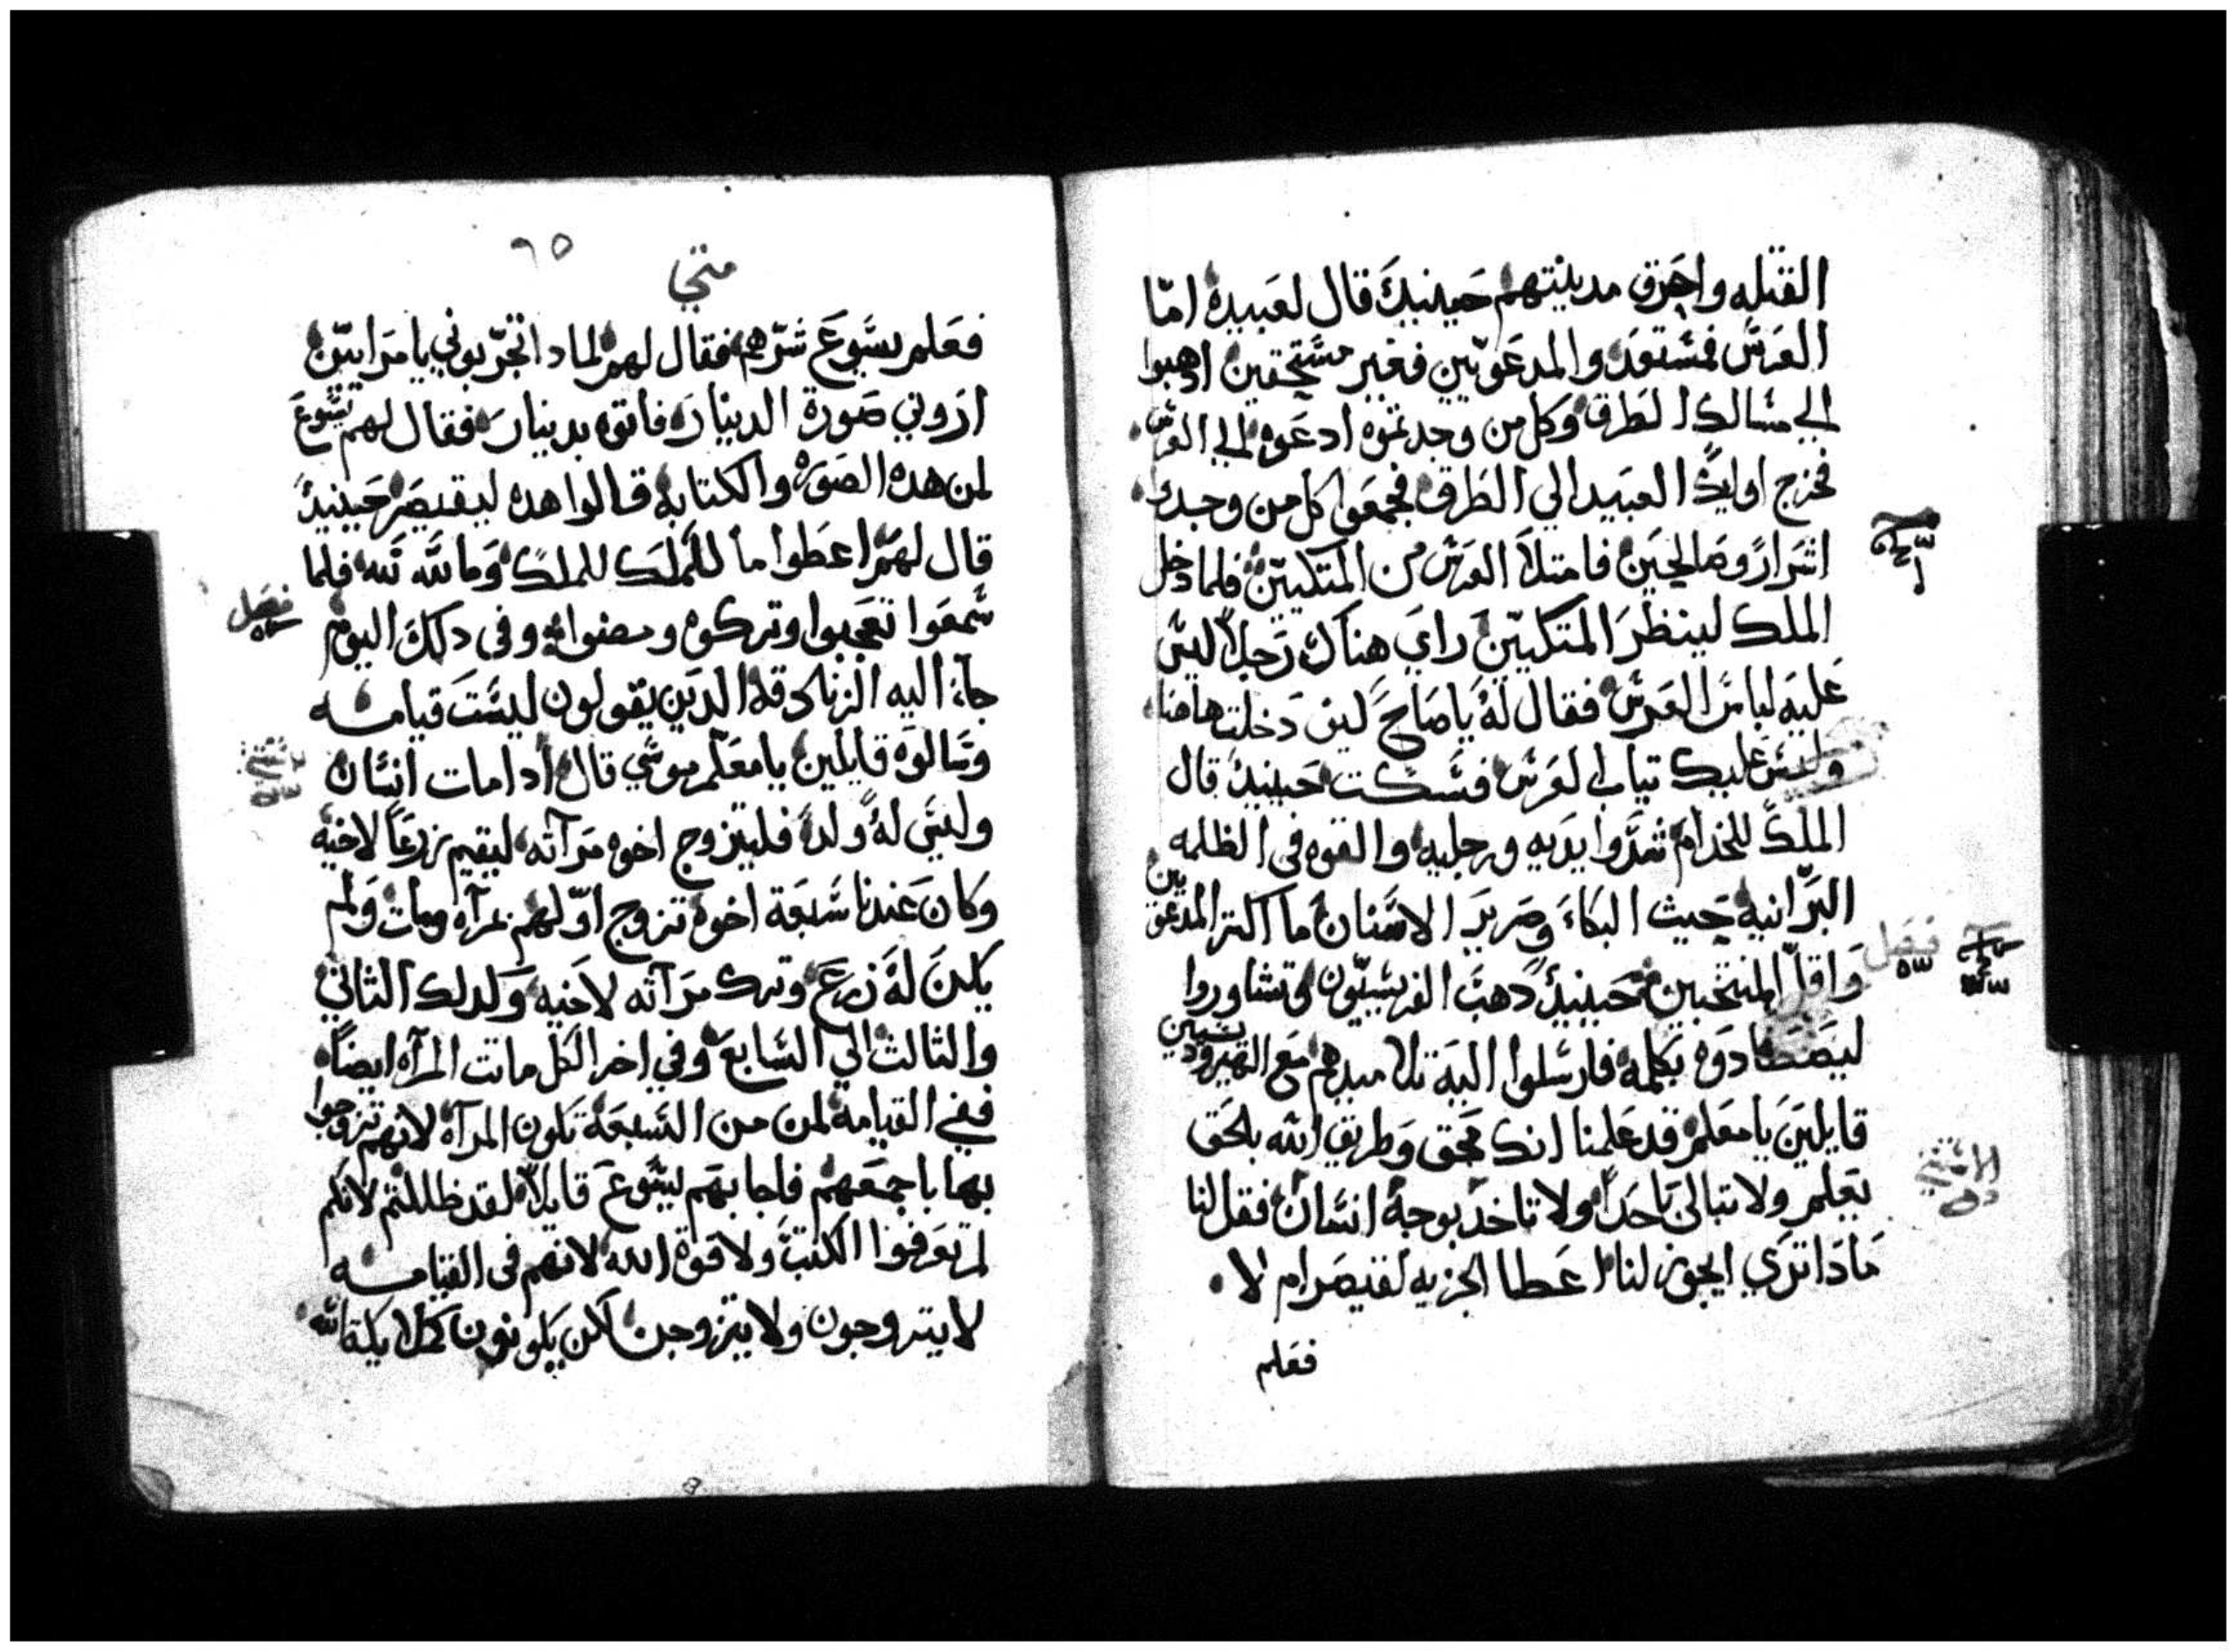 القتله واحرق مدينتهم حينيدٍ قال لعبيده امّا
العرس فمستعد والمدعوّيين فغير مستحقين اذهبوا
الي مسالك الطرق وكل من وجدتموه ادعوه الي العرس
فخرج اوليك العبيد الي الطرق فجمعوا كل من وجدوا
اشرار وصالحين فامتلا العرس من المتكيّين فلما دخل
الملك لينظر المتكيّين راي هناك رجلاً ليس
عليه لباس العرس فقال له يا صاح ليف دخلت هاهنا
وليس عليك تياب العرس فسكت حينيدٍ قال
الملك للخدام شدّوا يديه ورجليه والقوه في الظلمه
البرّانيه حيث البكاء وصرير الاسنان ما اكتر المدعوّين
واقلّ المنتخبين حينيدٍ دهب الفريسيّون وتشاوروا
ليصطادوه بكلمة فارسلوا اليه تلاميدهم مع الهيرودسيين
قايلين يا معلم قد علمنا انك محق وطريق الله بلحق
تعلم ولا تبالي باحداً ولا تاخد بوجه انسان فقل لنا
مادا تري ايجوز لنا اعطا الجزيه لقيصر ام لا
فعلم
فصل
متي
٦٥
فعلم يسوع شرّهم فقال لهم لمادا تجرّبوني يا مراييّن
اروني صورة الدينار فاتوه بدينار فقال لهم يسوع
لمن هده الصوره والكتابه قالوا هده ليقيصر حينيدٍ
قال لهم اعطوا ما للملك للملك وما لله لله فلما
سمعوا تعجبوا وتركوه ومضوا وفي دلك اليوم
جاء اليه الزنادقه الدين يقولون ليست قيامه
وسالوه قايلين يا معلم موسي قال ادا مات انسان
وليس له ولد فليتزوج اخوه مرآته ليقيم زرعاً لاخيه
وكان عندنا سبعة اخوه تزوج اوّلهم بمرآه ومات ولم
يكن له زرع وترك مرآته لاخيه وكدلك الثاني
والثالث الي السابع وفي اخر الكل ماتت المرآه ايضاً
ففي القيامة لمن من السبعة تكون المرآه لانهم تزوجوا
بها باجمعهم فاجابهم يسوع قايلاً لقد ظللتم لانكم
لم تعرفوا الكتب ولا قوة الله لانهم في القيامه
لا يتزوجون ولا يتزوجن لكن يكونون كملايكة الله
فصل